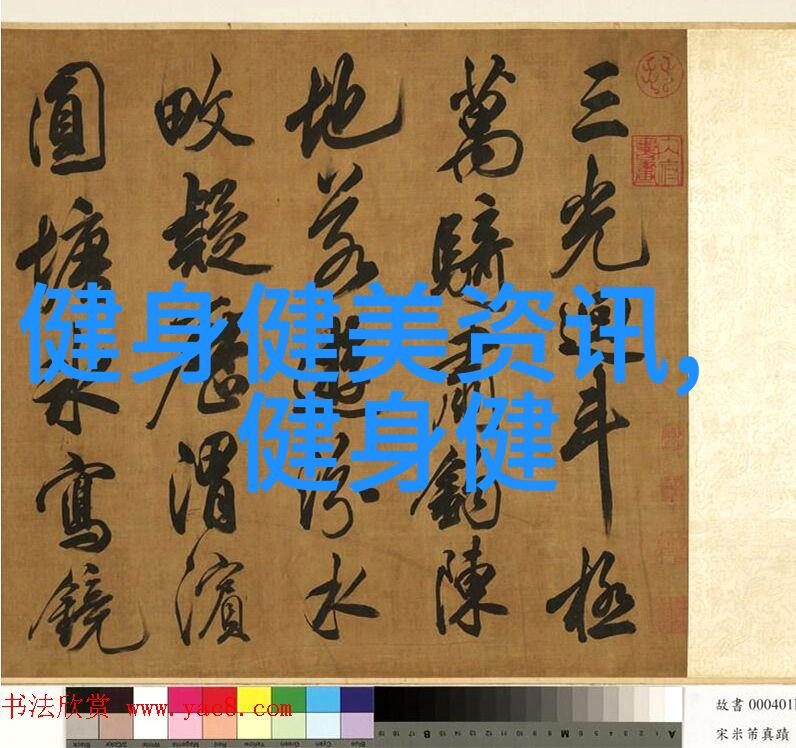 三光迴斗極
萬騎肅鉤陳
地若遊汾水
畋疑歷渭濱
圓塘氷寫鏡
健身健美资讯,
健身健
书法欣赏 www.yac8.com
故書 000401
宋米芾真蹟